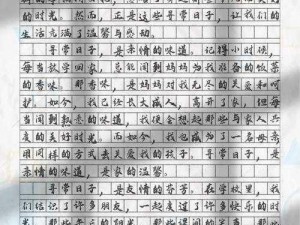 的时光。然而，正是这些寻常日子，让我们的
生活充满了温馨与感动。
寻常日子，是亲情的味道。记得小时候，
每当放学回家，总能闻到妈妈为我准备的饭菜
的香味。那香味，是妈妈对我无尽的关爱和呵
护。如今，我已经长大成人，离开了家，但每
当闻到熟悉的味道，我总会想起那些与家人共
度的美好时光。而如今，我也成为了一名母亲
用同样的方式去关爱我的孩子。寻常日子，是
亲情的味道，是家的温馨。
寻常日子，是友情的芬芳。在学校里，我
们结识了许多朋友，一起度过了许多快乐的时